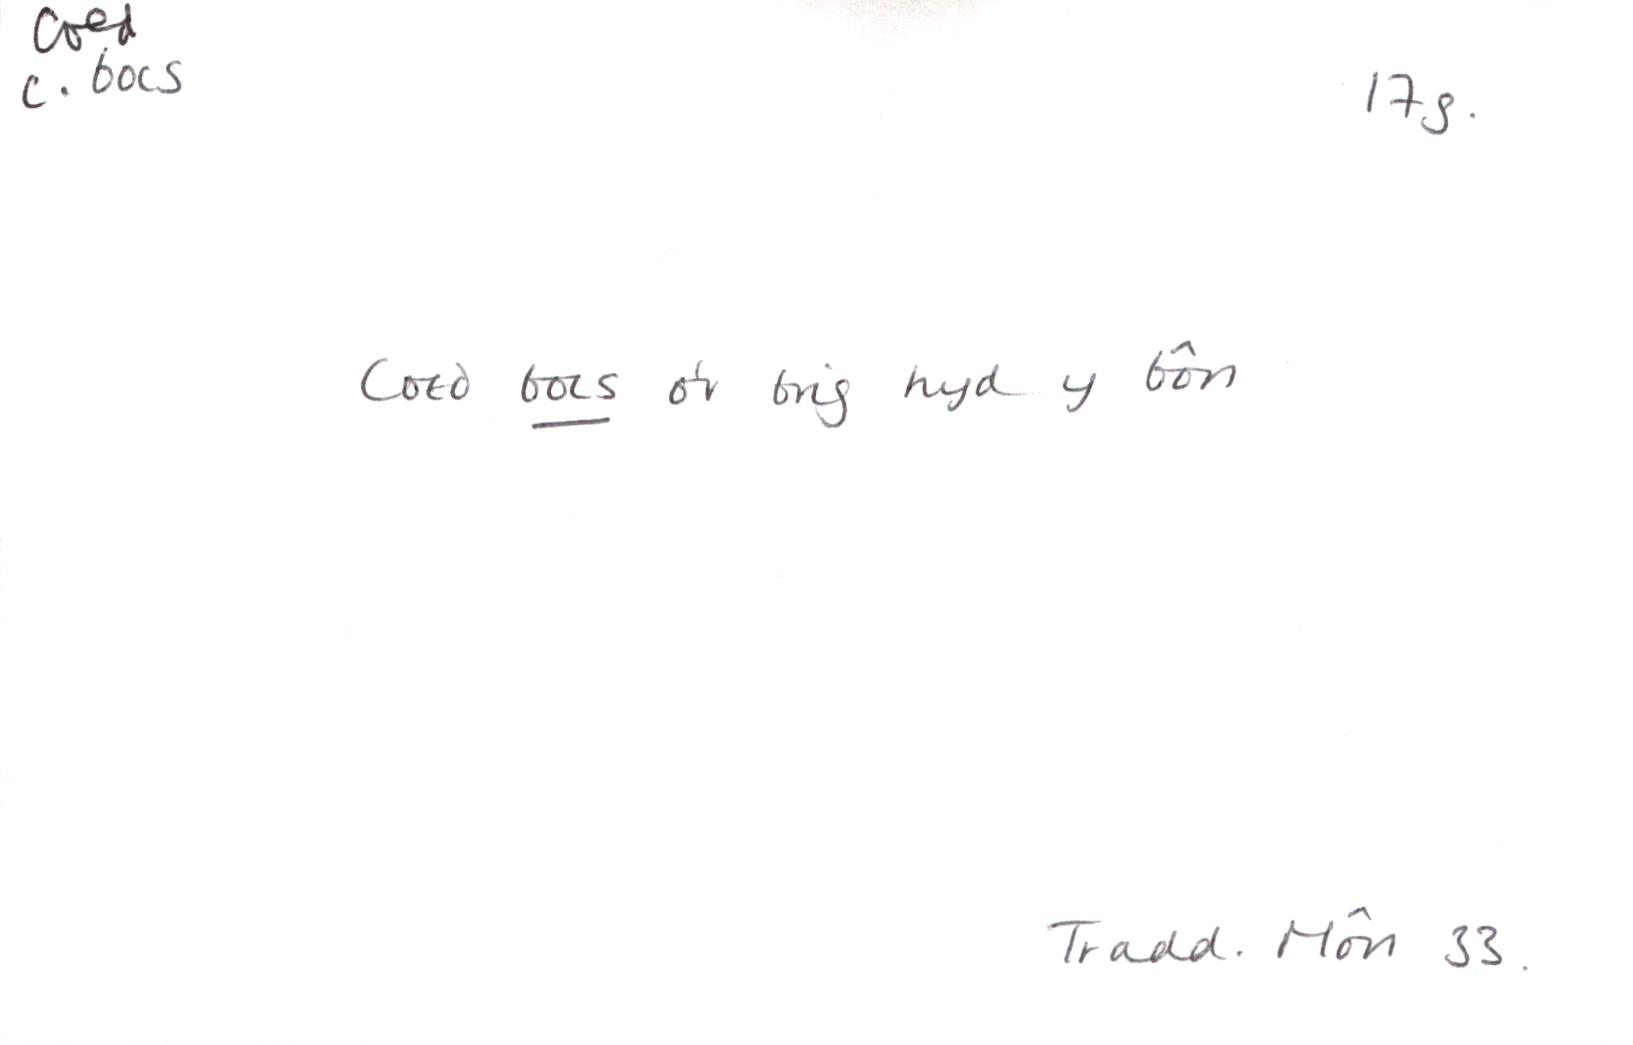 Coed
c. bocs
17g.
Coed bocs o'r brig hyd y bôn
Tradd. Môn 33.